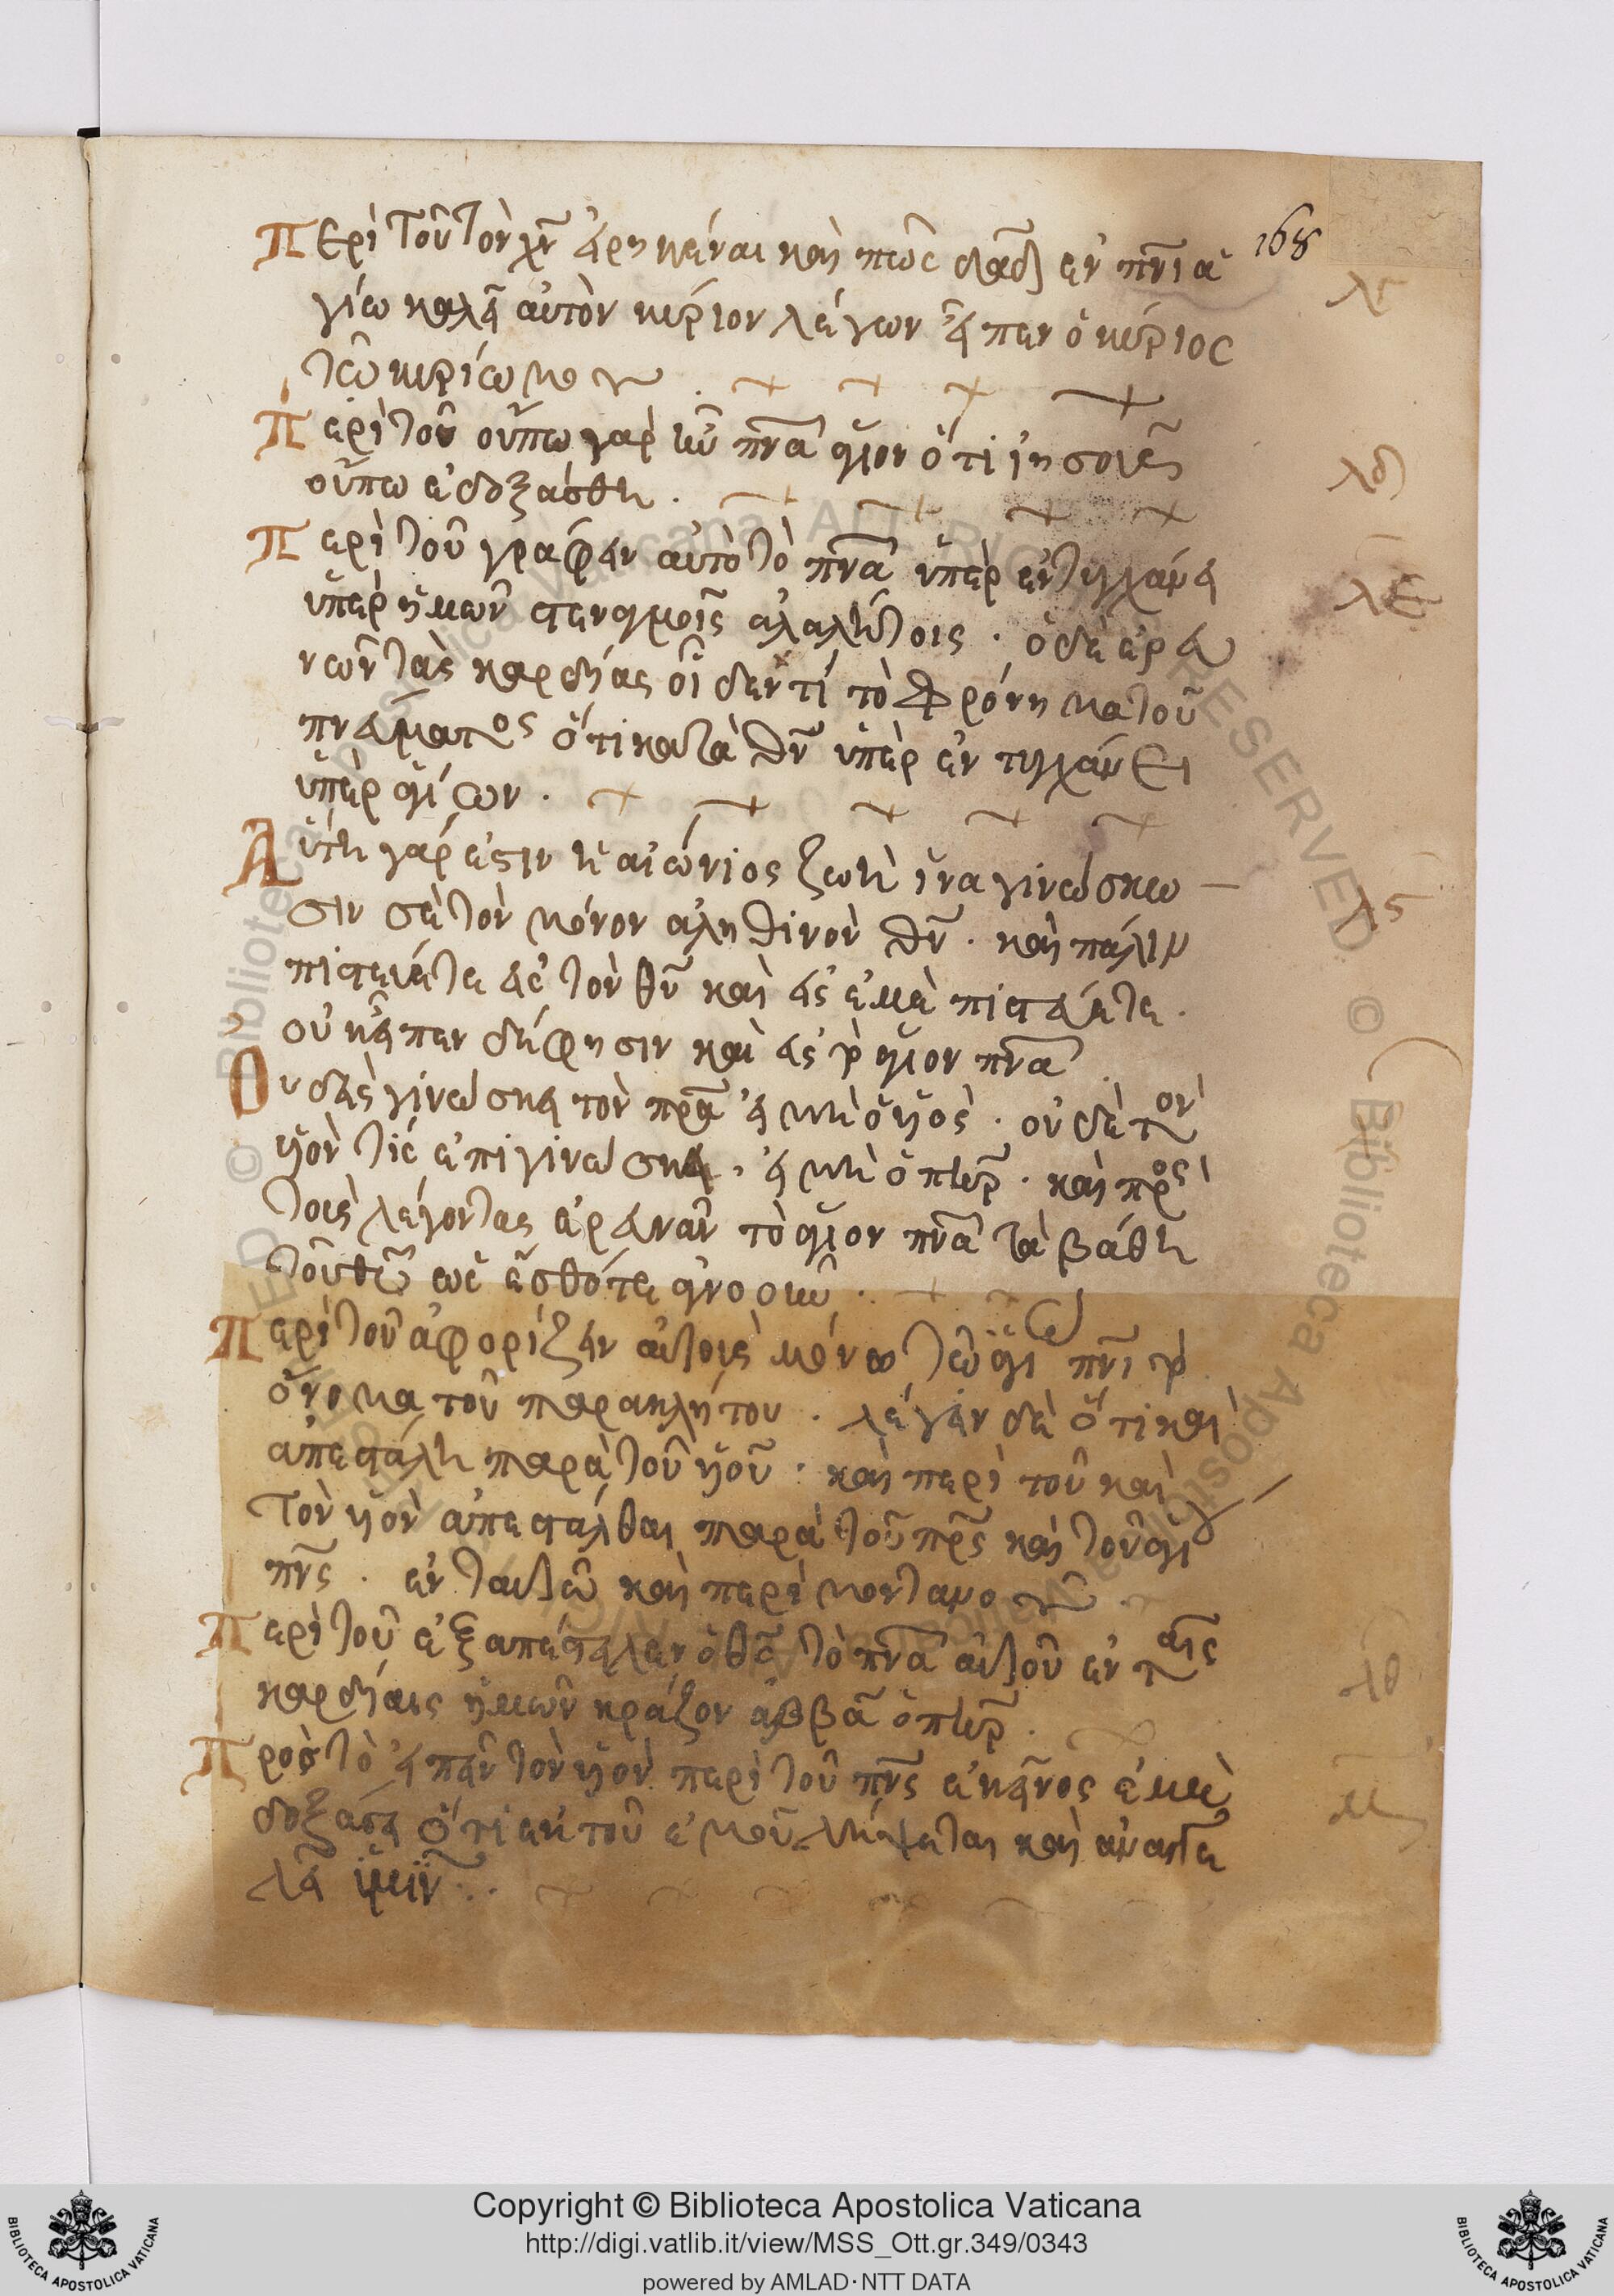 Περὶ τοῦ τὸν χν̅ εἰρηκέναι καὶ πῶς δᾱδ ἐν πνι̅ ἁ 168
γίω καλεῖ αὐτὸν κύριον λέγων εἶπεν ὁ κύριος λγ
τῶ κυρίω μου .
Περὶ τοῦ οὔπω γὰρ ἦν πνα̅ ἅγιον ὅτι ἰησοῦς λδ
οὔπω ἐδοξάσθη .
Περὶ τοῦ γράφειν αὐτὸ τὸ πνα̅ ὑπερεντυγχάνει λε
ὑπὲρ ἡμῶν στεναγμοῖς ἀλαλήτοις · ὁ δὲ ἐρευ
νῶν τὰς καρδίας οἶδεν τί τὸ φρόνημα τοῦ
πνεύματος ὅτι κατὰ θν̅ ὑπερεντυγχάνει
ὑπὲρ ἁγίων .
Αὕτη γάρ ἐστιν ἡ αἰώνιος ζωὴ ἵνα γινώσκω λς
σιν σὲ τὸν μόνον ἀληθινὸν θν̅ . καὶ πάλιν
πιστεύετε εἰς τὸν θν̅ καὶ εἰς ἐμὲ πιστεύετε .
οὐκ εἶπεν δέ φησιν καὶ εἰς τὸ ἅγιον πνα̅
Οὐδεὶς γινώσκει τὸν πρα̅ εἰ μὴ ὁ υἱός . οὐδὲ τὸν
υἱόν τις ἐπιγινώσκει , εἰ μὴ ὁ πηρ̅ . καὶ πρὸς
τοὺς λέγοντας ἐρευνᾶν τὸ ἅγιον πνα̅ τὰ βάθη
τοῦ θυ̅ ὡς
Περὶ τοῦ ἀφορίζειν αὐτοὺς μόνω τῶ ἁγίω πνι̅ τὸ
ὄνομα τοῦ παρακλήτου . λέγειν δὲ ὅτι καὶ
ἀπεστάλη παρὰ τοῦ υἱοῦ · καὶ περὶ τοῦ καὶ
τὸν υἱὸν ἀπεστάλθαι παρὰ τοῦ πρς̅ καὶ τοῦ ἁγίου
πνς̅ . ἐν ταυτῶ καὶ περὶ μοντανοῦ .
Περὶ τοῦ ἐξαπέστειλεν ὁ θς̅ τὸ πνα̅ αὐτοῦ ἐν ταῖς λθ
καρδίαις ἡμῶν κράζον ἀββᾶ ὁ πηρ̅ .
Πρὸς τὸ εἰπεῖν τὸν υἱὸν περὶ τοῦ πνς̅ ἐκεῖνος ἐμὲ μ
δοξάσει ὅτι ἐκ τοῦ ἐμοῦ λήψεται καὶ ἀναγγε
λεῖ ὑμῖν .
Copyright © Biblioteca Apostolica Vaticana
http://digi.vatlib.it/view/MSS_Ott.gr.349/0343
powered by AMLAD·NTT DATA